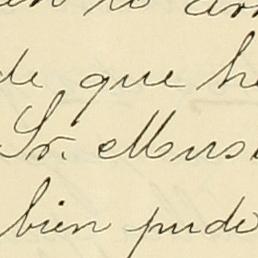 de que h
Sr. Mus
bien pude